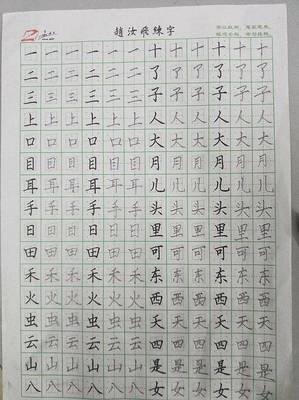 趙汝飛練字
一一一一一一十十十十十十
二二二二二二了了了了了了
三三三三三三子子子子子子
上上上上上上人人人人人人
口口口口口口大大大大大大
目目目目目目月月月月月月
耳耳耳耳耳耳儿儿儿儿儿儿
手手手手手手头头头头头头
日日日日日日里里里里里里
田田田田田田可可可可可可
禾禾禾禾禾禾东东东东东东
火火火火火火西西西西西西
虫虫虫虫虫虫天天天天天天
云云云云云云四四四四四四
山山山山山山是是是是是是
八八八八八八女女女女女女